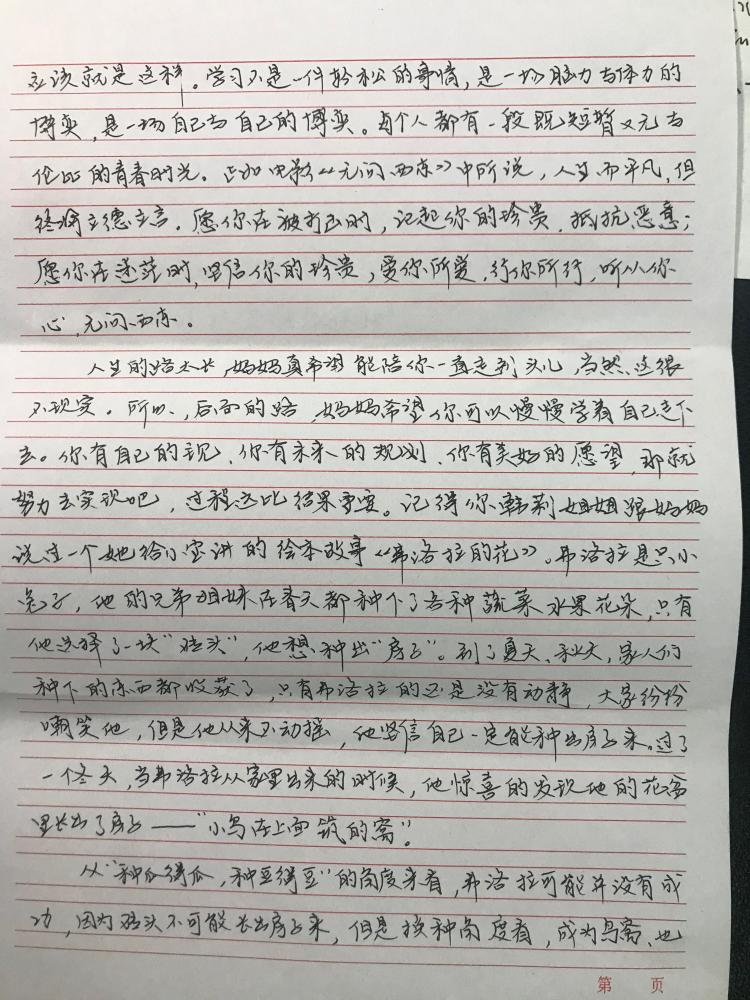 应该就是这样。学习不是一件轻松的事情，是一场脑力与体力的
博弈，是一场自己与自己的博弈。每个人都有一段既短暂又无与
伦比的青春时光。正如电影《无问西东》中所说，人生而平凡，但
终将立德立言。愿你在被打击时，记起你的珍贵，抵抗恶意；
愿你在迷茫时，坚信你的珍贵，爱你所爱，行你所行，听从你
心，无问西东。
人生的路太长，妈妈真希望能陪你一直走到头儿，当然，这很
不现实。所以，后面的路，妈妈希望你可以慢慢学着自己走下
去。你有自己的主见、你有未来的规划、你有美好的愿望，那就
努力去实现吧，过程远比结果重要。记得你韩莉姐姐跟妈妈
说过一个她给小宝讲的绘本故事《弗洛拉的花》。弗洛拉是只小
兔子，他的兄弟姐妹在春天都种下了各种蔬菜水果花朵，只有
他选择了一块“砖头”，他想种出“房子”。到了夏天、秋天，家人们
种下的东西都收获了，只有弗洛拉的还是没有动静，大家纷纷
嘲笑他，但是他从来不动摇，他坚信自己一定能种出房子来。过了
一个冬天，当弗洛拉从家里出来的时候，他惊喜的发现他的花盆
里长出了房子——“小鸟在上面筑的窝”。
从“种瓜得瓜，种豆得豆”的角度来看，弗洛拉可能并没有成
功，因为砖头不可能长出房子来，但是换种角度看，成为鸟窝，也
第 页